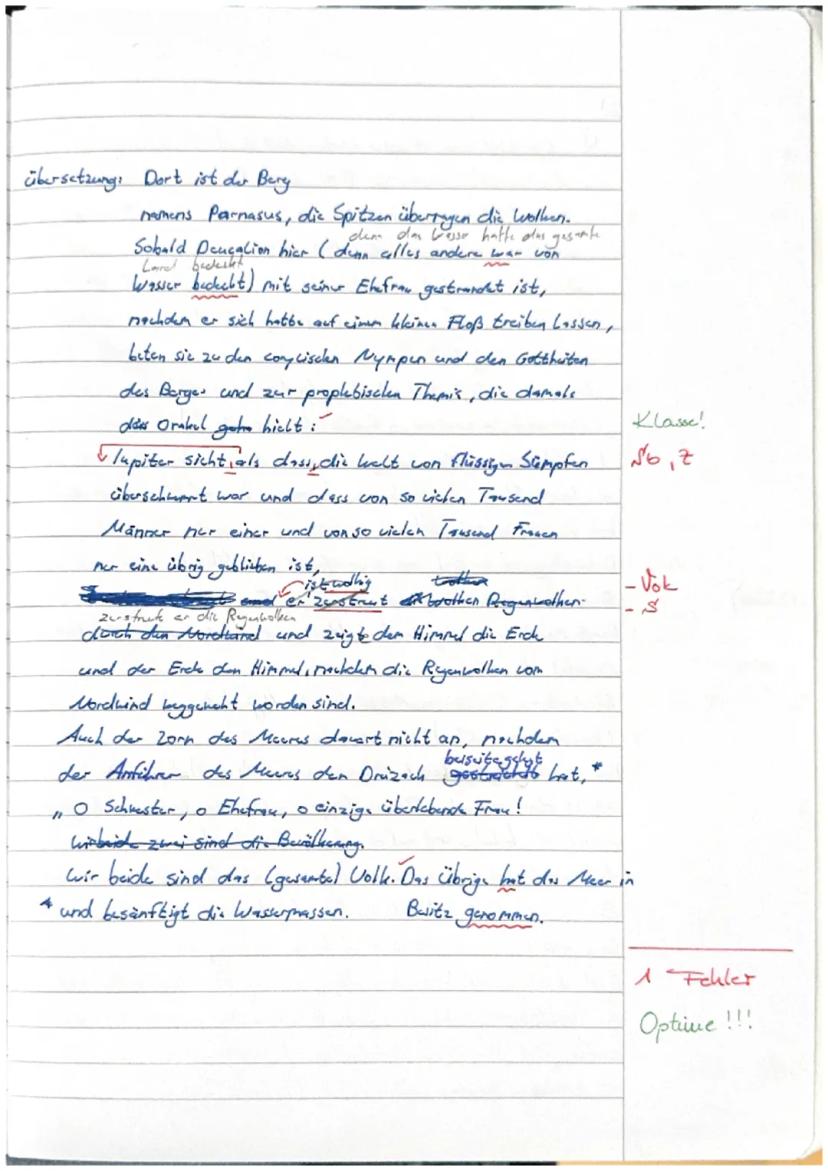 Übersetzung: Dort ist der Berg
namens Parnasus, die Spitzen überragen die Wolken.
denn das Wasser hatte das gesamte
Sobald Deucalion hier (denn alles andere war von
Land bedeckt
Wasser bedeckt) mit seiner Ehefrau gestrandet ist,
nachdem er sich hatte auf einem kleinen Floß treiben lassen,
beten sie zu den corycischen Nympen und den Gottheiten
des Berges und zur prophebischen Themis, die damals
das Orakel hielt:
Klasse!
Iupiter sieht, als dass, die Welt von flüssigen Sümpfen
Sb, Z
überschwemmt war und dass von so vielen Tausend
Männer nur einer und von so vielen Tausend Frauen
nur eine übrig geblieben ist,
ist wolkig
wolken
- Vok
und er zerstreut Wolken Regenwolken
- S
zerstreute er die Regenwolken
durch den Nordwind und zeigte dem Himmel die Erde
und der Erde den Himmel, nachdem die Regenwolken vom
Nordwind weggeweht worden sind.
Auch der Zorn des Meeres dauert nicht an, nachdem
beiseitegelegt
der Anführer des Meeres den Dreizack gestreckt hat, *
„O Schwester, o Ehefrau, o einzige überlebende Frau!
Wir beide zwei sind die Bevölkerung.
Wir beide sind das (gesamte) Volk. Das Übrige hat das Meer in
* und besänftigt die Wassermassen. Besitz genommen.
1 Fehler
Optime!!!